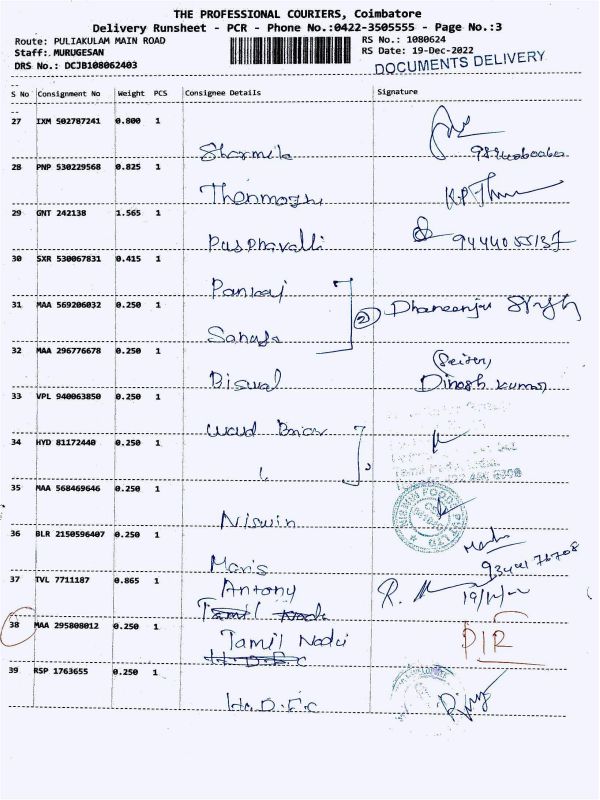 THE PROFESSIONAL COURIERS, Coimbatore
Delivery Runsheet - PCR - Phone No.:0422-3505555 - Page No.:3
Route: PULIAKULAM MAIN ROAD
RS No.: 1080624
Staff: MURUGESAN
RS Date: 19-Dec-2022
DRS No.: DCJB108062403
DOCUMENTS DELIVERY
S No Consignment No Weight PCS Consignee Details Signature
27 IXM 502787241 0.800 1
Sharmila
28 PNP 530229568 0.825 1
Thenmozhi
29 GNT 242138 1.565 1
Pusphavalli 9444055137
30 SXR 530067831 0.415 1
Pankaj
31 MAA 569206032 0.250 1
② Dhaneenju Singh
32 MAA 296776678 0.250 1
Biswal Dinesh Kumar
33 VPL 940063850 0.250 1
34 HYD 81172440 0.250 1
35 MAA 568469646 0.250 1
Niswin
36 BLR 2150596407 0.250 1
Maris
37 TVL 7711187 0.865 1
Antony
Tamil Nadu
38 MAA 295808012 0.250 1
Tamil Nadu DIR
H.D.F.C
39 RSP 1763655 0.250 1
H.D.F.C